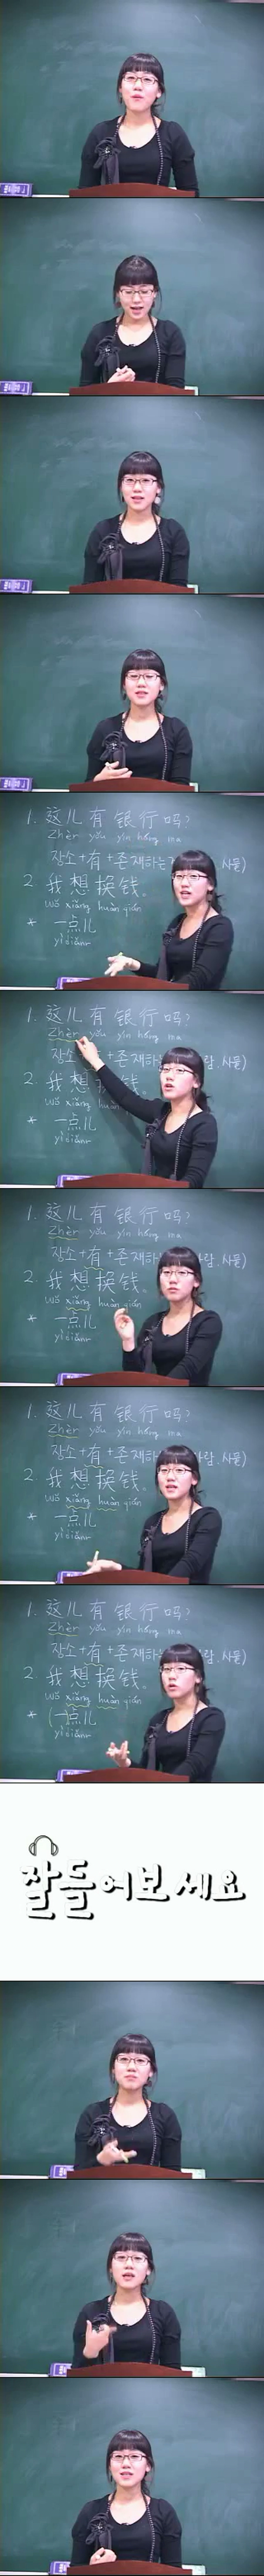 1. 这儿有银行吗?
Zhèr yǒu yín háng ma
장소+有+존재하는
사물)
2. 我想换钱。
wǒ xiǎng huàn qián
* 一点儿
yìdiǎnr
1. 这儿有银行吗?
Zhèr yǒu yín háng ma
장소
람.사물)
2. 我想换钱。
wǒ xiǎng huàn
* 一点儿
yìdiǎnr
1. 这儿有银行吗?
Zhèr yǒu yín háng ma
장소+有+존재하
사람.사물)
2. 我想换钱。
wǒ xiǎng huàn qián
* 一点儿
yìdiǎnr
1. 这儿有银行吗?
Zhèr yǒu yín háng ma
장소+有+존재하
사람.사물)
2. 我想换钱。
wǒ xiǎng huàn qián
* 一点儿
yìdiǎnr
1. 这儿有银行吗?
Zhèr yǒu yín háng ma
장소+有+존재하
람.사물)
2. 我想换钱。
wǒ xiǎng huàn qián
* (一点儿
yìdiǎnr
잘들어보세요